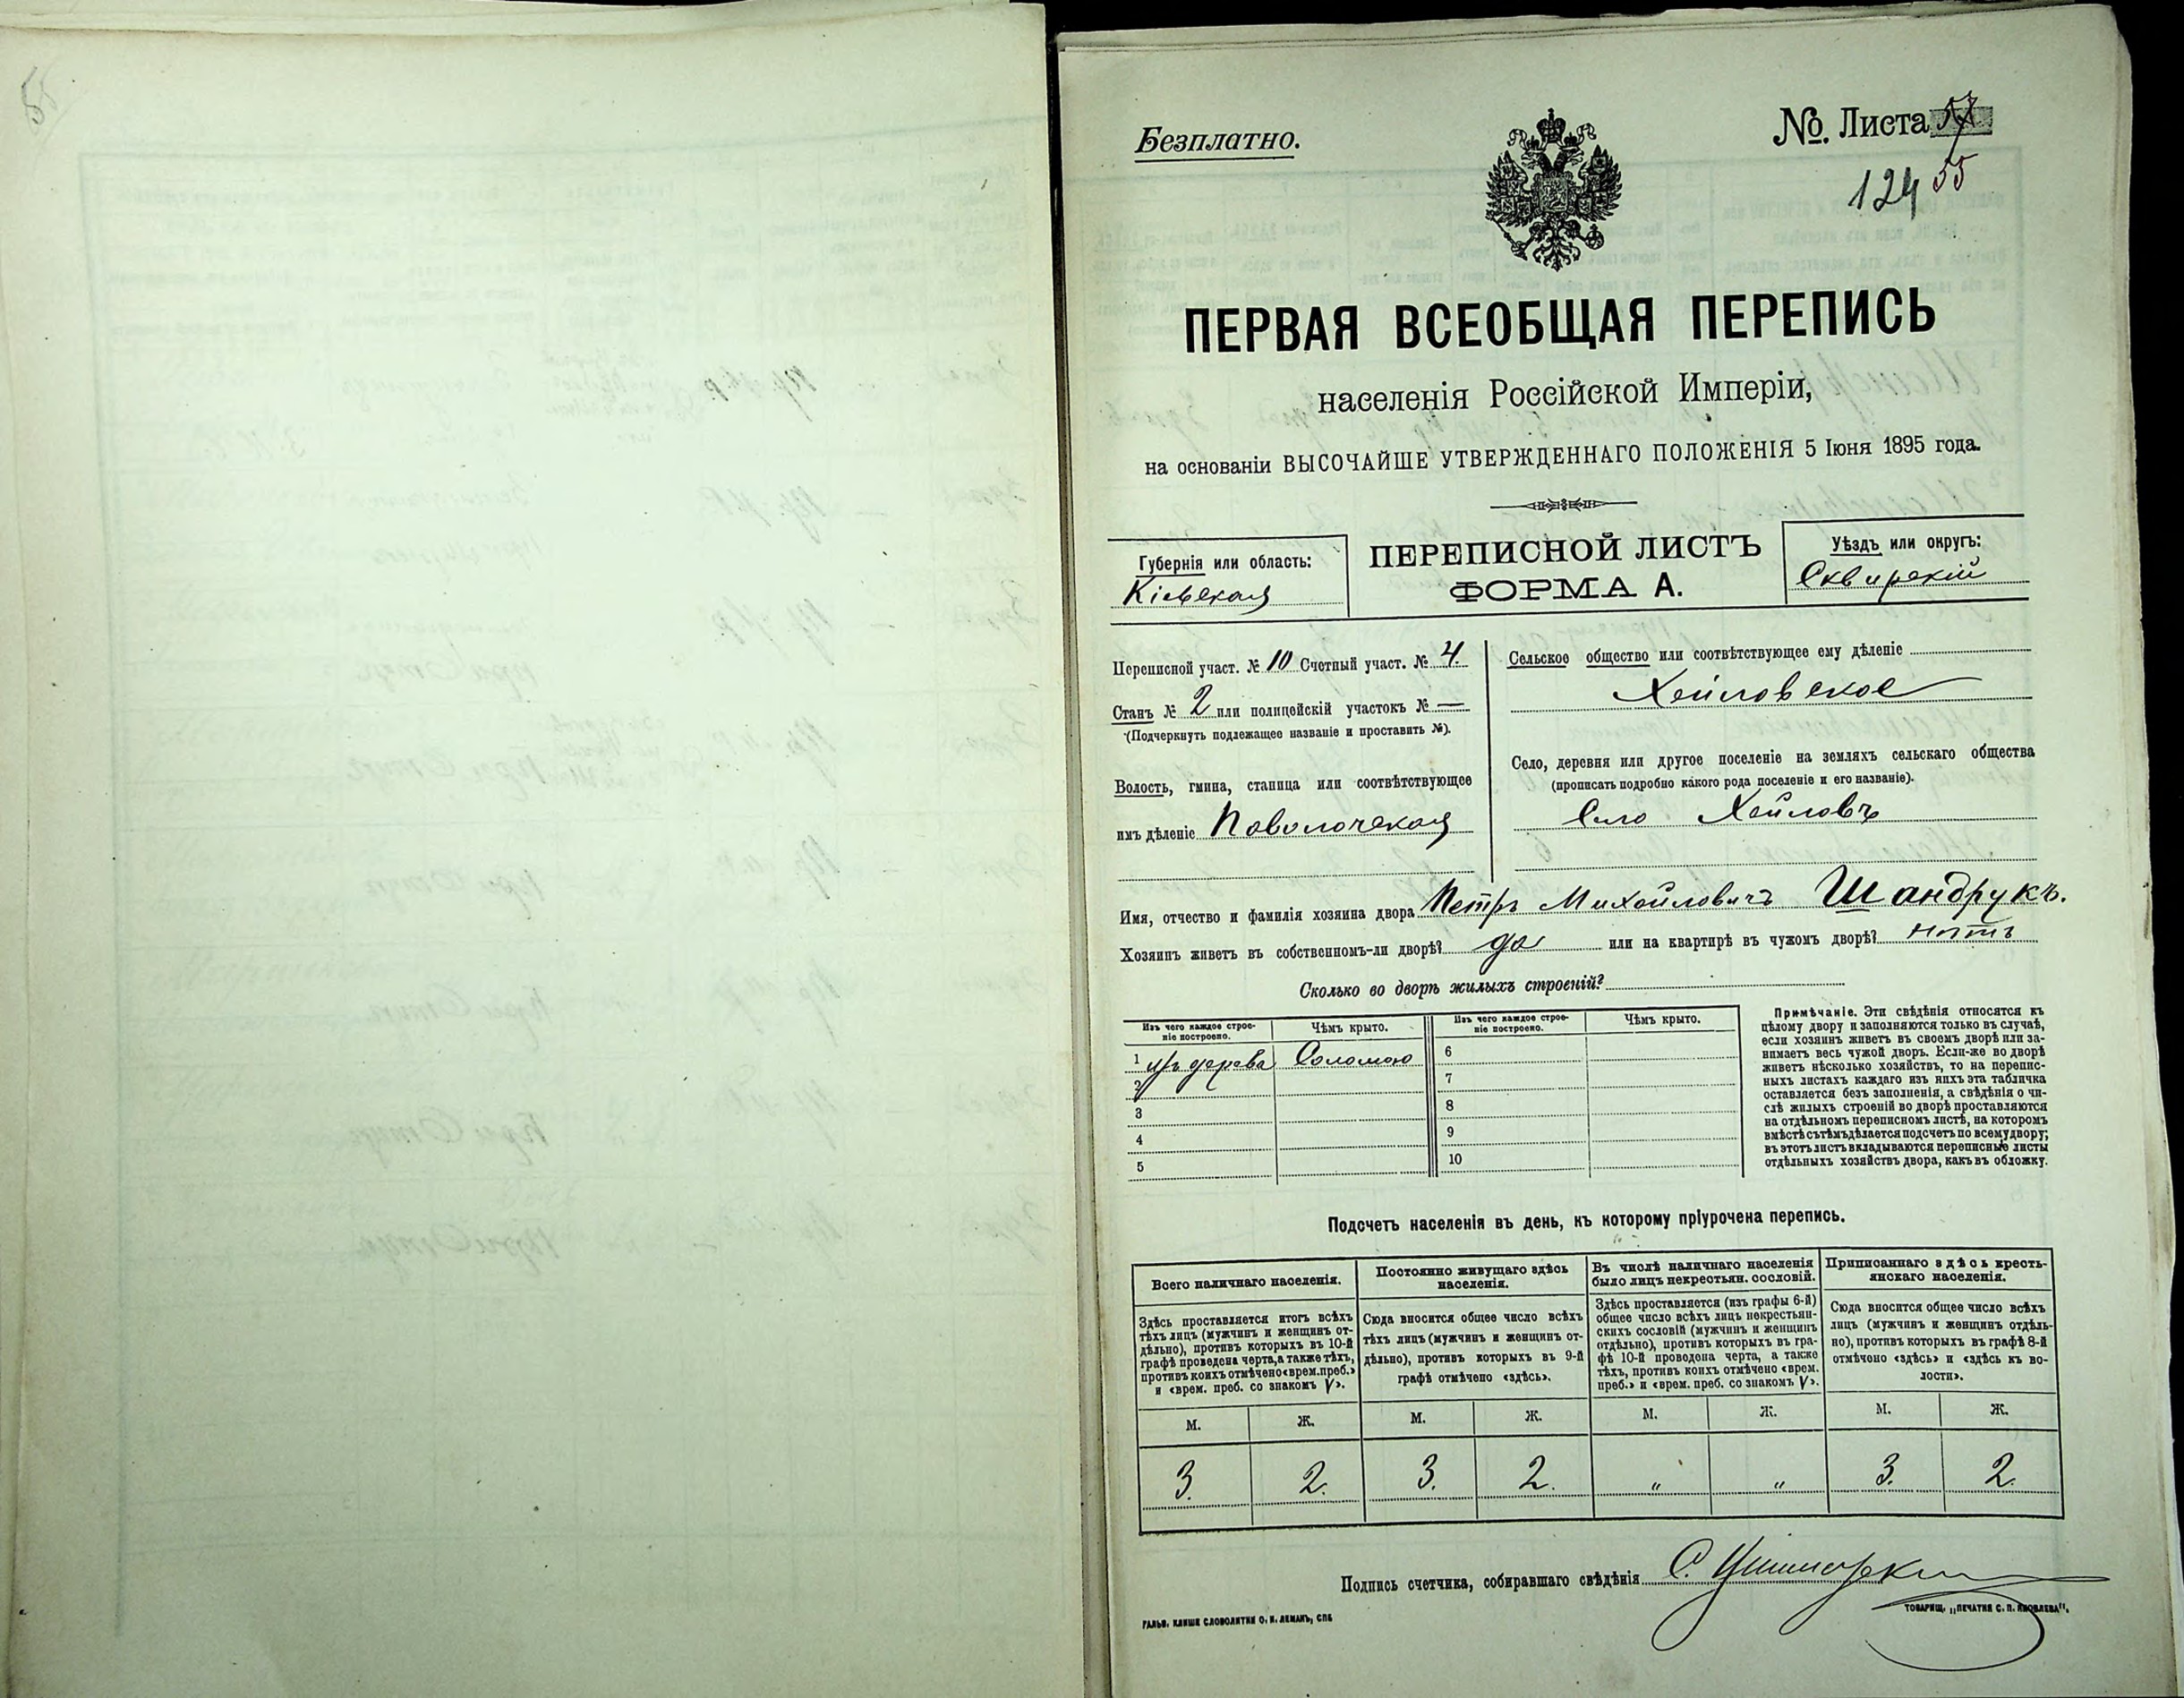 Безплатно.
№ Листа
124 55
ПЕРВАЯ ВСЕОБЩАЯ ПЕРЕПИСЬ
населенія Россійской Имперіи,
на основаніи ВЫСОЧАЙШЕ УТВЕРЖДЕННАГО ПОЛОЖЕНІЯ 5 Іюня 1895 года.
Губернія или область:
Кіевская
ПЕРЕПИСНОЙ ЛИСТЪ
ФОРМА А.
Уѣздъ или округъ:
Сквирскій
Переписной участ. № 10 Счетный участ. № 4.
Станъ № 2 или полицейскій участокъ № —
(Подчеркнуть подлежащее названіе и проставить №).
Волость, гмина, станица или соотвѣтствующее
имъ дѣленіе Паволочская
Сельское общество или соотвѣтствующее ему дѣленіе
Хейловское
Село, деревня или другое поселеніе на земляхъ сельскаго общества
(прописать подробно какого рода поселеніе и его названіе).
Село Хейловъ
Имя, отчество и фамилія хозяина двора Петръ Михайловичъ Шандрукъ.
Хозяинъ живетъ въ собственномъ-ли дворѣ? да или на квартирѣ въ чужомъ дворѣ? нѣтъ
Сколько во дворѣ жилыхъ строеній?
Изъ чего каждое строе-
ніе построено.
Чѣмъ крыто.
Изъ чего каждое строе-
ніе построено.
Чѣмъ крыто.
1 изъ дерева Соломою 6
2 7
3 8
4 9
5 10
Примѣчаніе. Эти свѣдѣнія относятся къ
цѣлому двору и заполняются только въ случаѣ,
если хозяинъ живетъ въ своемъ дворѣ или за-
нимаетъ весь чужой дворъ. Если-же во дворѣ
живетъ нѣсколько хозяйствъ, то на перепис-
ныхъ листахъ каждаго изъ нихъ эта табличка
оставляется безъ заполненія, а свѣдѣнія о чи-
слѣ жилыхъ строеній во дворѣ проставляются
на отдѣльномъ переписномъ листѣ, на которомъ
вмѣстѣ съ тѣмъ дѣлается подсчетъ по всему двору;
въ этотъ листъ вкладываются переписные листы
отдѣльныхъ хозяйствъ двора, какъ въ обложку.
Подсчетъ населенія въ день, къ которому пріурочена перепись.
Всего наличнаго населенія.
Постоянно живущаго здѣсь
населенія.
Въ числѣ наличнаго населенія
было лицъ некрестьян. сословій.
Приписаннаго здѣсь кресть-
янскаго населенія.
Здѣсь проставляется итогъ всѣхъ
тѣхъ лицъ (мужчинъ и женщинъ от-
дѣльно), противъ которыхъ въ 10-й
графѣ проведена черта, а также тѣхъ,
противъ коихъ отмѣчено «врем. преб.»
и «врем. преб. со знакомъ V».
Сюда вносится общее число всѣхъ
тѣхъ лицъ (мужчинъ и женщинъ от-
дѣльно), противъ которыхъ въ 9-й
графѣ отмѣчено «здѣсь».
Здѣсь проставляется (изъ графы 6-й)
общее число всѣхъ лицъ некрестьян-
скихъ сословій (мужчинъ и женщинъ
отдѣльно), противъ которыхъ въ гра-
фѣ 10-й проведена черта, а также
тѣхъ, противъ коихъ отмѣчено «врем.
преб.» и «врем. преб. со знакомъ V».
Сюда вносится общее число всѣхъ
лицъ (мужчинъ и женщинъ отдѣль-
но), противъ которыхъ въ графѣ 8-й
отмѣчено «здѣсь» и «здѣсь къ во-
лости».
М. Ж. М. Ж. М. Ж. М. Ж.
3. 2. 3. 2. " " 3. 2.
Подпись счетчика, собиравшаго свѣдѣнія С.
ГАЛЬВ. КЛИШЕ СЛОВОЛИТНИ О. И. ЛЕМАНЪ, СПБ
ТОВАРИЩ. „ПЕЧАТНЯ С. П. ЯКОВЛЕВА".